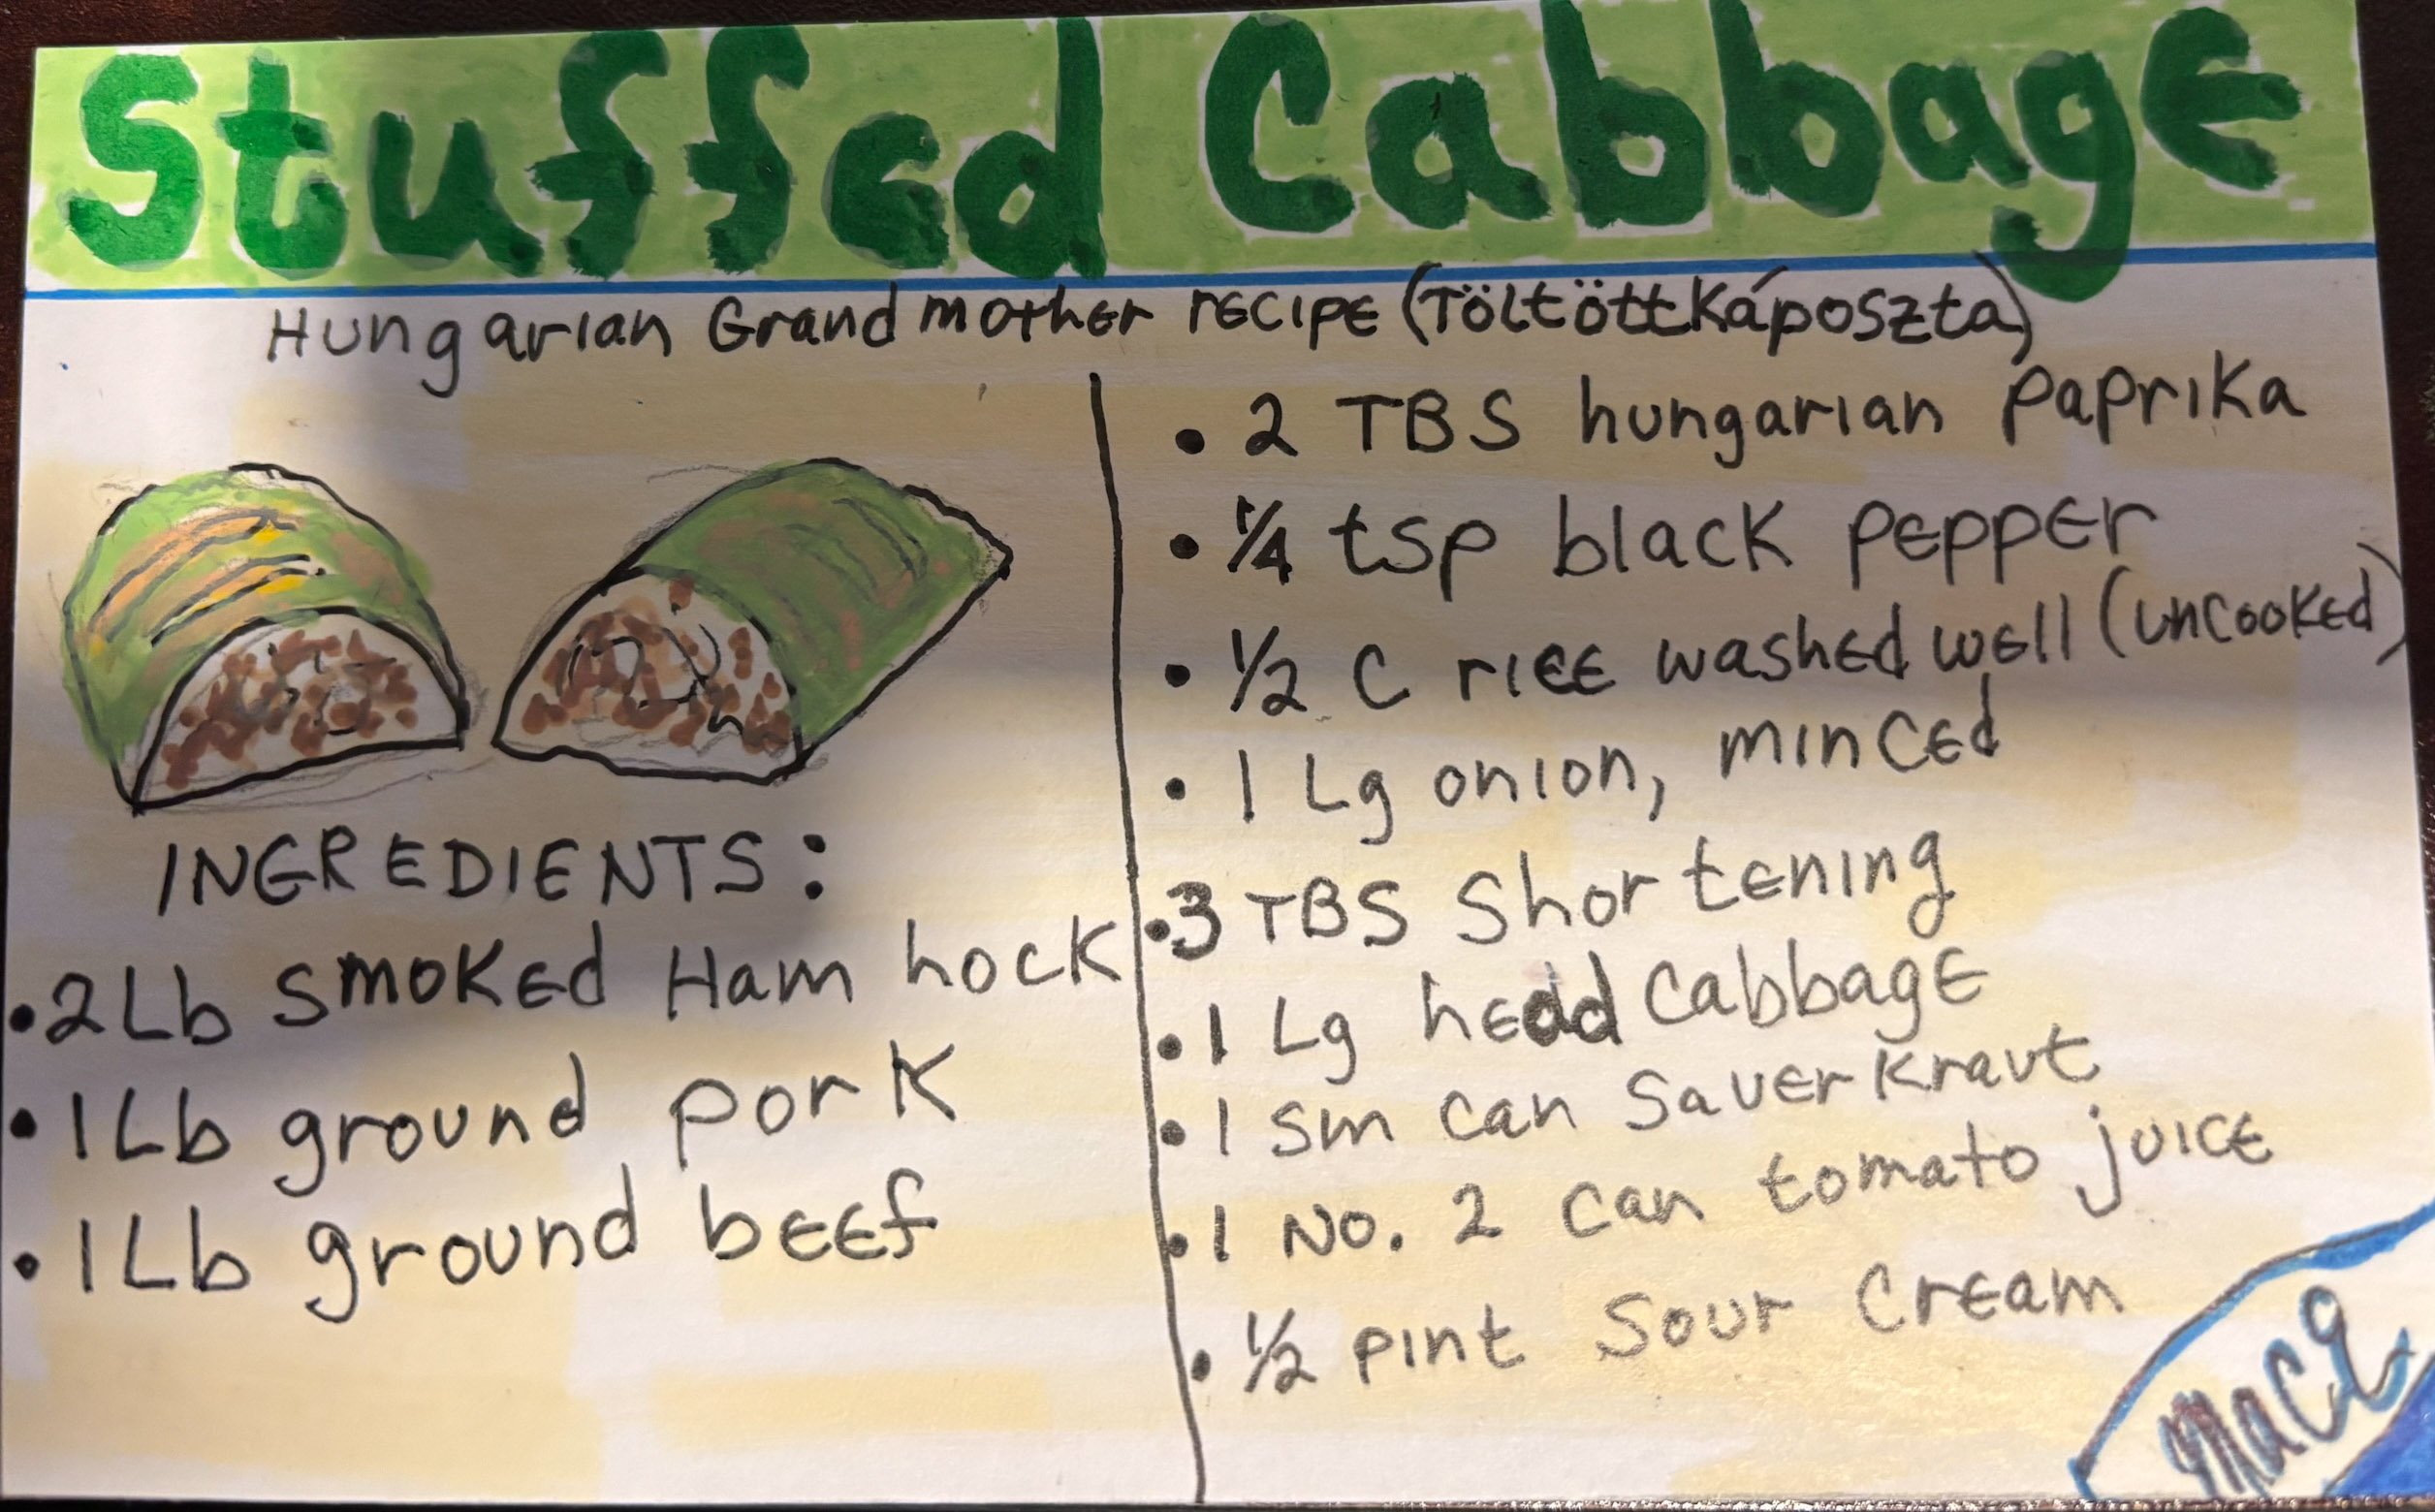 Stuffed Cabbage
Hungarian Grandmother recipe (TöltöttKáposzta)
INGREDIENTS:
• 2 Lb smoked Ham hock
• 1 Lb ground pork
• 1 Lb ground beef
• 2 TBS hungarian paprika
• 1/4 tsp black pepper
• 1/2 C rice washed well (uncooked)
• 1 Lg onion, minced
• 3 TBS Shortening
• 1 Lg head Cabbage
• 1 sm can SauerKraut
• 1 No. 2 can tomato juice
• 1/2 pint Sour Cream